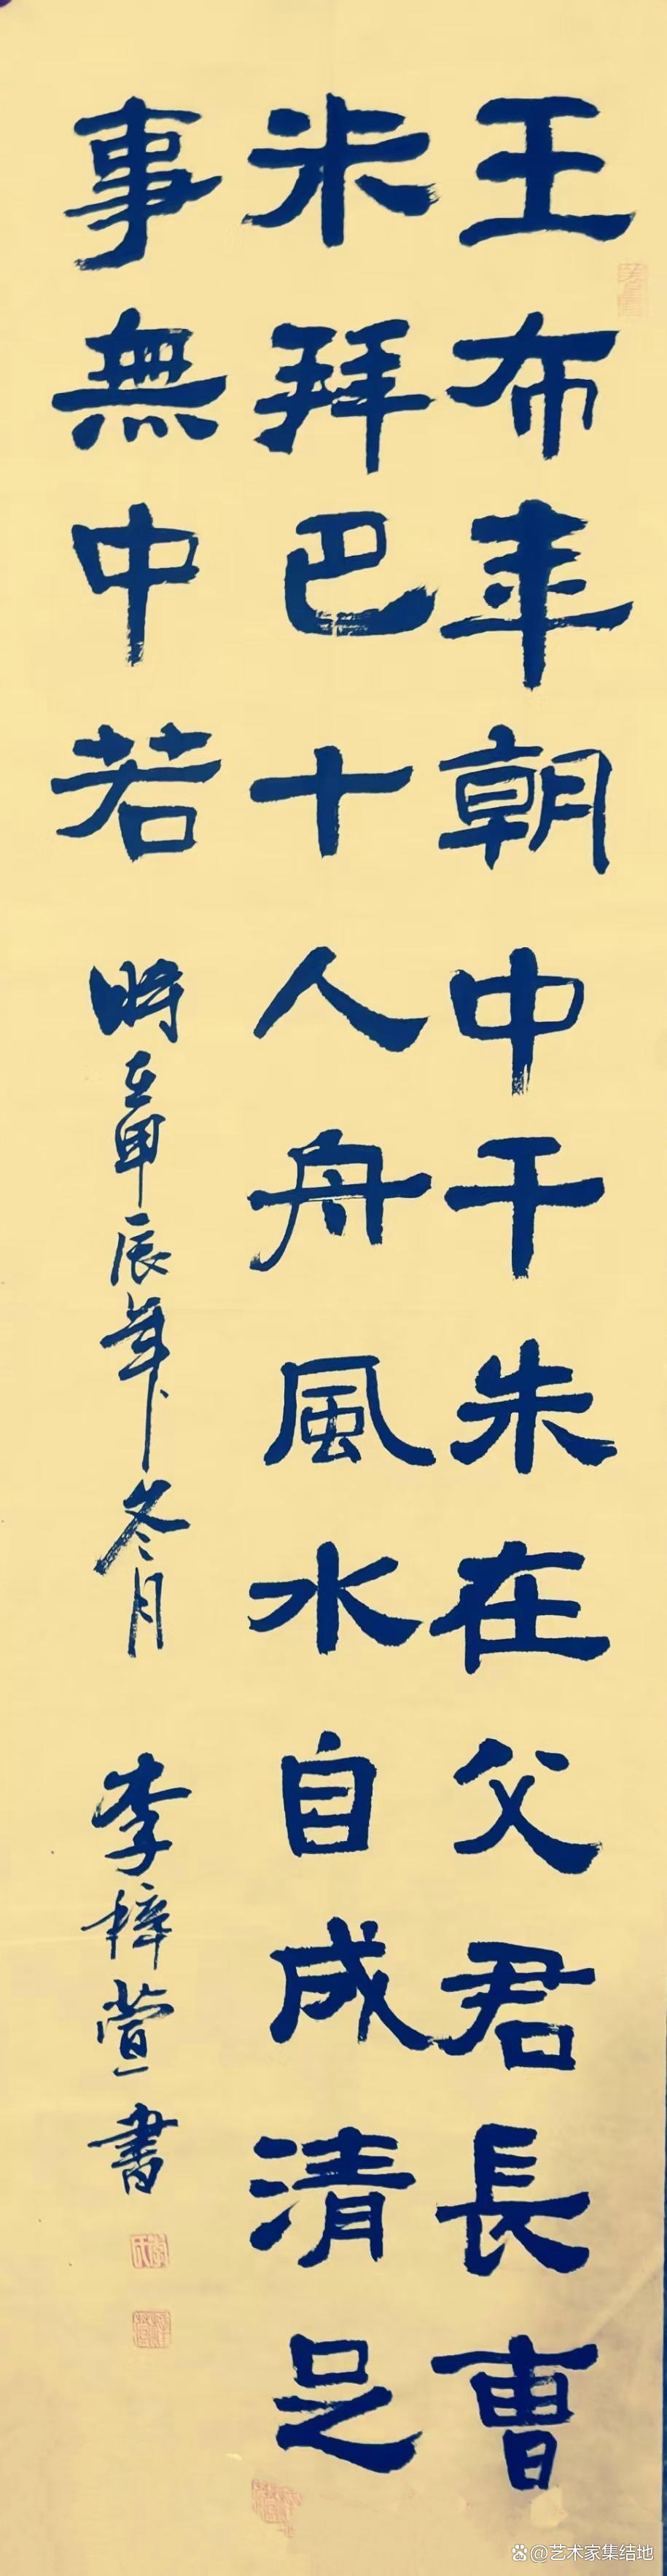 王布年朝中干朱在父君長曹
米拜巴十人舟風水自成清足
事無中若
時在甲辰年冬月
李梓萱書
@艺术家集结地